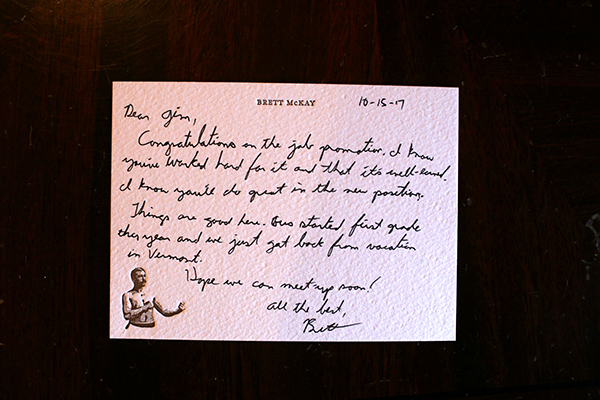 BRETT McKAY
10-15-17
Dear Jim,
Congratulations on the job promotion. I know
you've worked hard for it and that it's well-earned.
I know you'll do great in the new position.
Things are good here. Gus started first grade
this year and we just got back from vacation
in Vermont.
Hope we can meet up soon!
All the best,
Brett